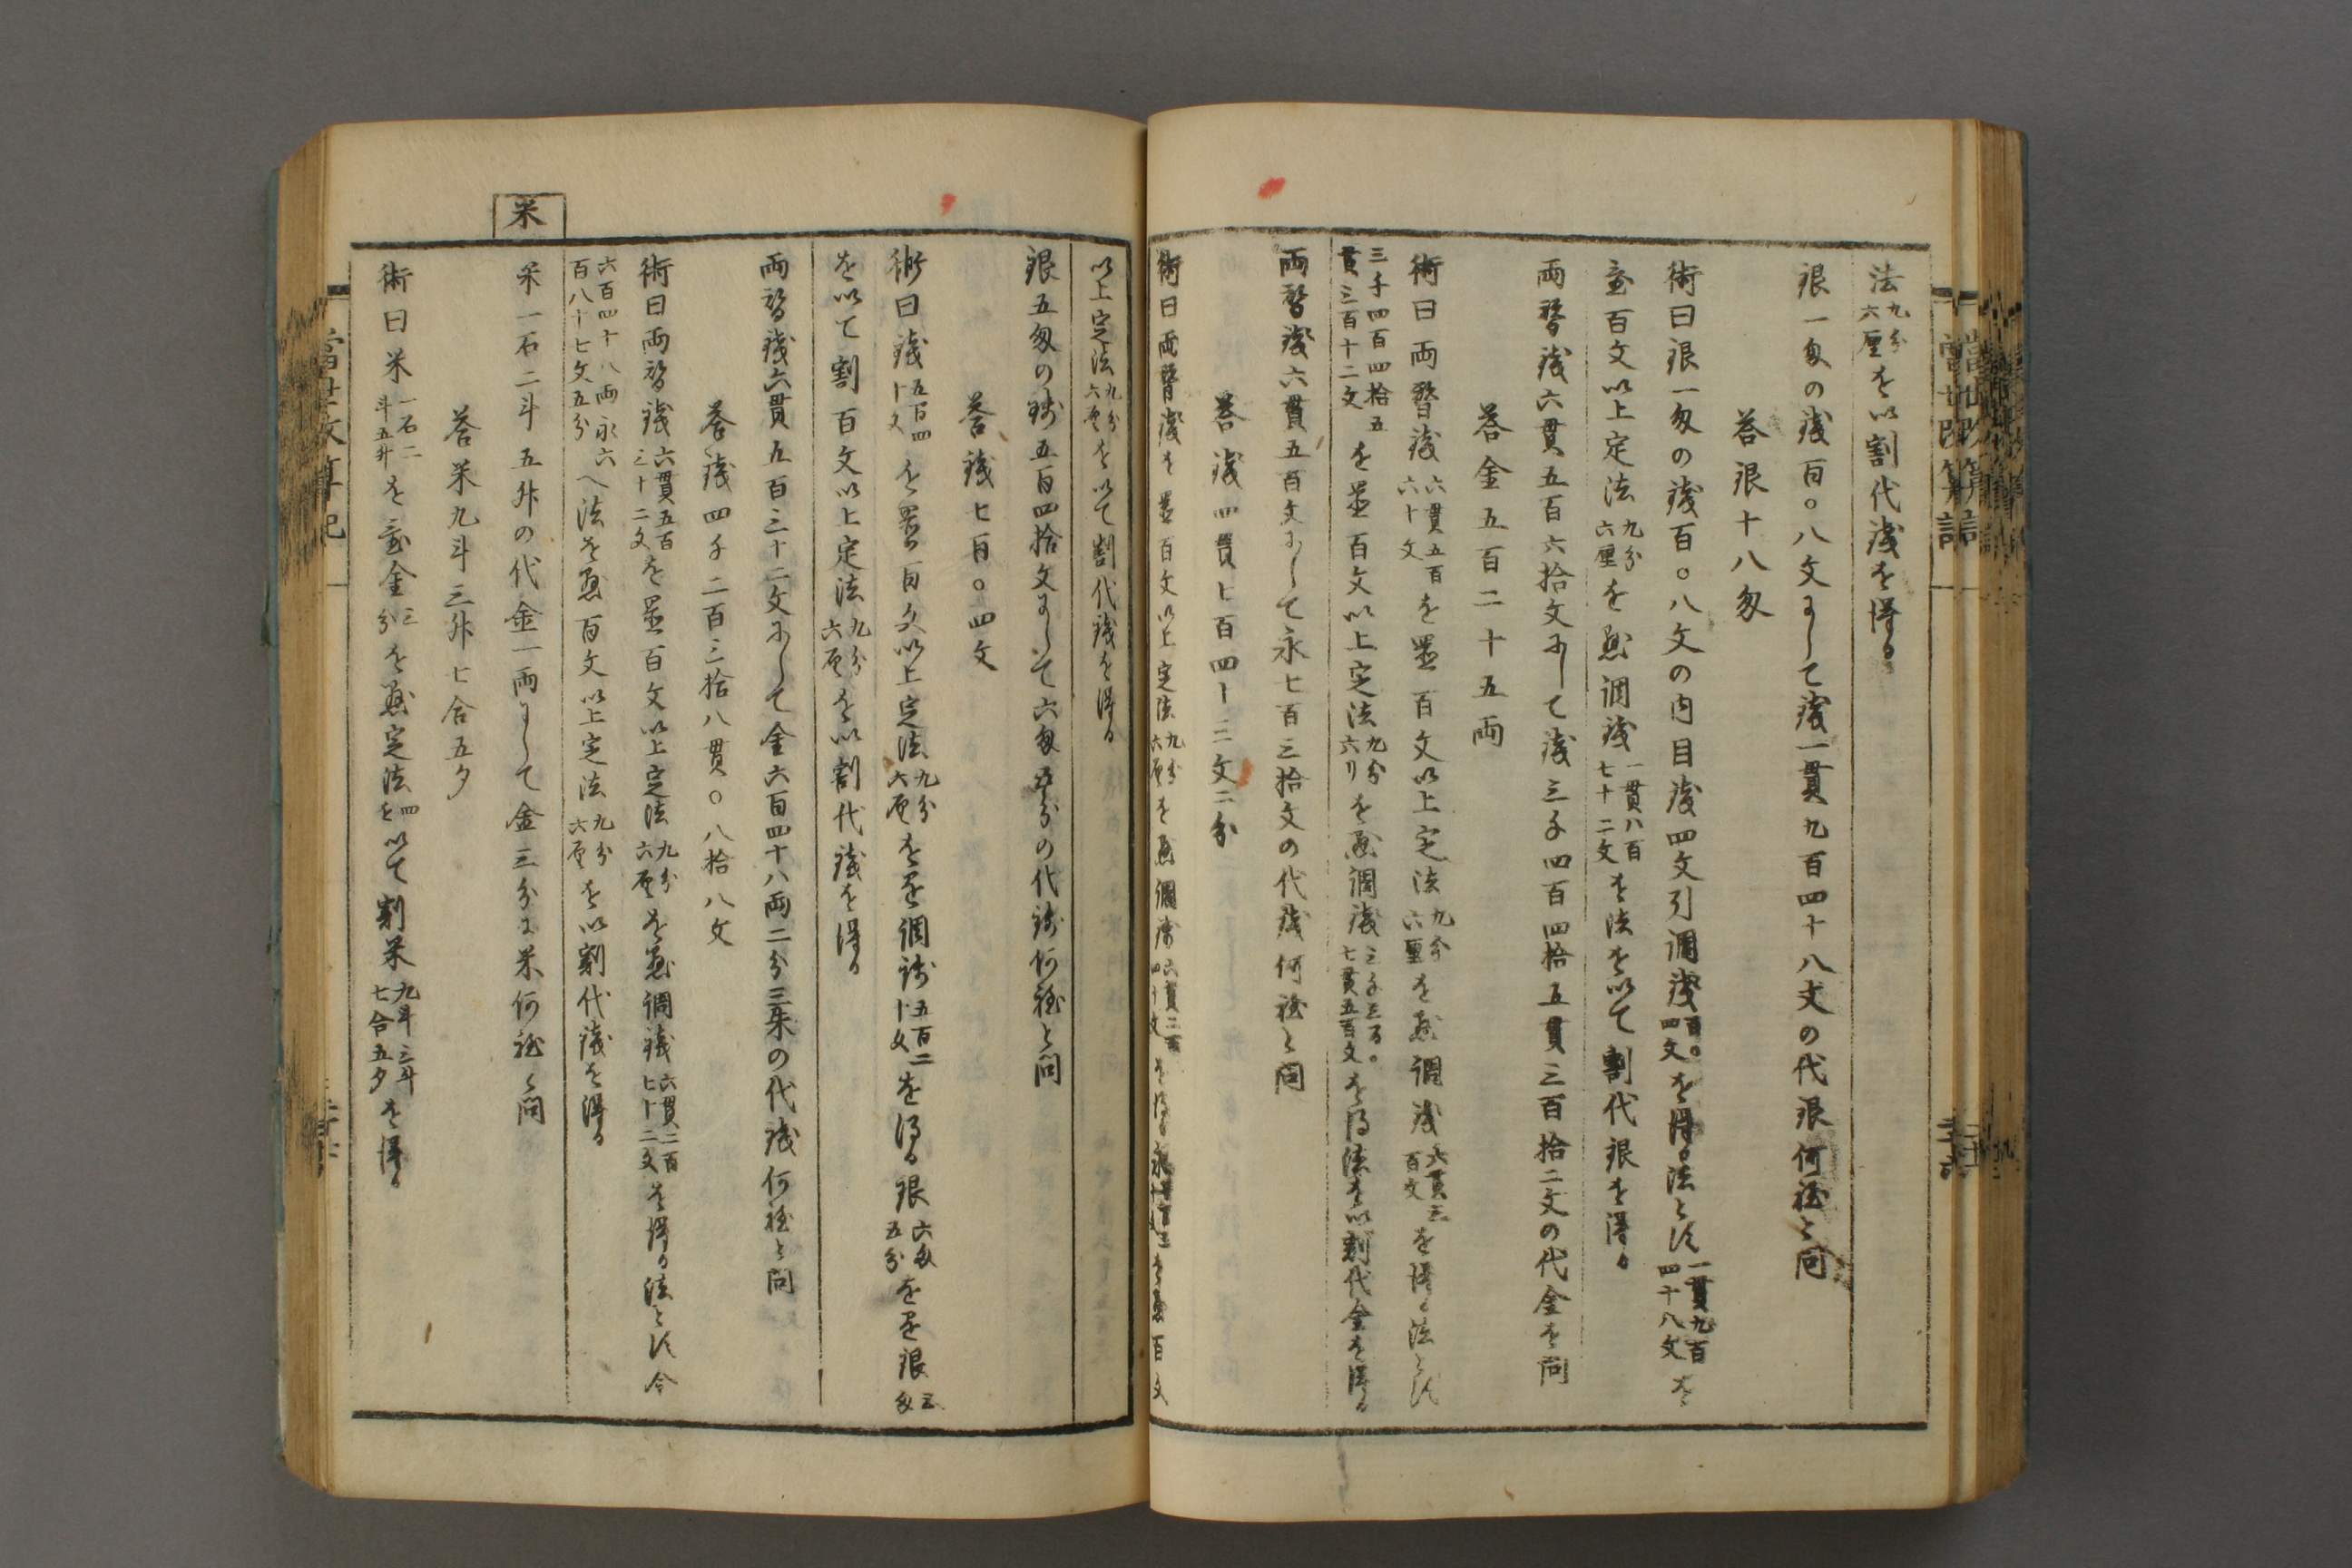 法九分六厘を以割代銭を得る
銀一匁の銭百〇八文にして銭一貫九百四十八文の代銀何程と問
答銀十八匁
術曰銀一匁の銭百〇八文の内目銭四文引調銭百〇四文を得る法とす一貫九百四十八文を
置百文以上定法九分六厘を懸調銭一貫八百七十二文を法を以て割代銀を得る
両替銭六貫五百六拾文にして銭三千四百四拾五貫三百拾二文の代金を問
答金五百二十五両
術曰両替銭六貫五百六十文を置百文以上定法九分六厘を懸調銭六貫三百文を得る法とす
三千四百四拾五貫三百十二文を置百文以上定法九分六リを懸調銭三千三百〇七貫五百文を得法を以割代金を得る
両替銭六貫五百文にして永七百三拾文の代銭何程と問
答銭四貫七百四十三文二分
術曰両替銭を置百文以上定法九分六厘を懸調銭六貫二百四十文を得る永七百三十文を懸百文
以上定法九分六厘を以て割代銭を得る
銀五匁の銭五百四拾文にして六匁五分の代銭何程と問
答銭七百〇四文
術曰銭五百四十文を置百文以上定法九分六厘を懸調銭五百二十文を得る銀六匁五分を懸銀五匁
を以て割百文以上定法九分六厘を以割代銭を得る
両替銭六貫五百三十二文にして金六百四十八両二分三朱の代銭何程と問
答銭四千二百三拾八貫〇八拾八文
術曰両替銭六貫五百三十二文を置百文以上定法九分六厘を懸調銭六貫二百七十二文を得る法とす今
六百四十八両永六百八十七文五分へ法を懸百文以上定法九分六厘を以割代銭を得る
米
米一石二斗五升の代金一両にして金三分に米何程と問
答米九斗三升七合五夕
術曰米一石二斗五升を置金三分を懸定法四を以て割米九斗三升七合五夕を得る